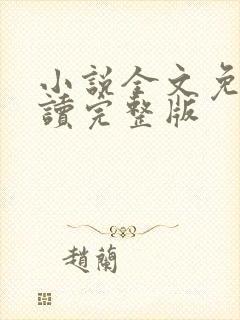 小說全文免
讀完整版
趙蘭